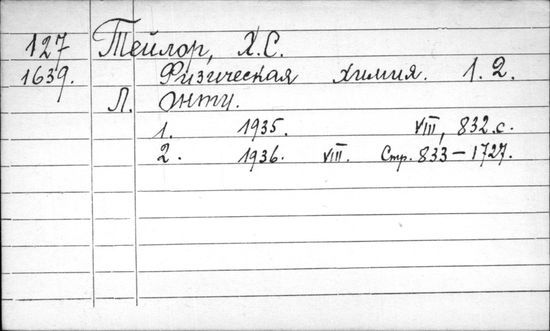 127 Тейлор, Х.С.
1639. Физическая химия. 1.2.
Л. ОНТИ.
1. 1935. VIII, 832.с.
2. 1936. VIII. Стр. 833-1727.